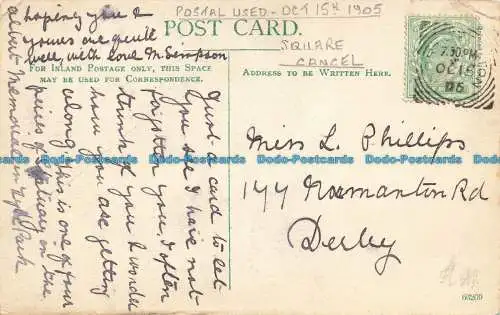 POSTAL USED - OCT 15th 1905
POST CARD.
SQUARE
CANCEL
FOR INLAND POSTAGE ONLY, THIS SPACE
MAY BE USED FOR CORRESPONDENCE.
ADDRESS TO BE WRITTEN HERE.
7.30 PM
OC 15
05
Just a card to let
you see I have not
forgotten you, I often
think of you & wonder
how you are getting
along. This is one of four
peices of Statuary on the
Albert Memorial in Hyde Park
hoping you &
yours are quite
well, with love M. Simpson
Miss L. Phillips
144 Normanton Rd
Derby
60209
Bonds-Postcards.com